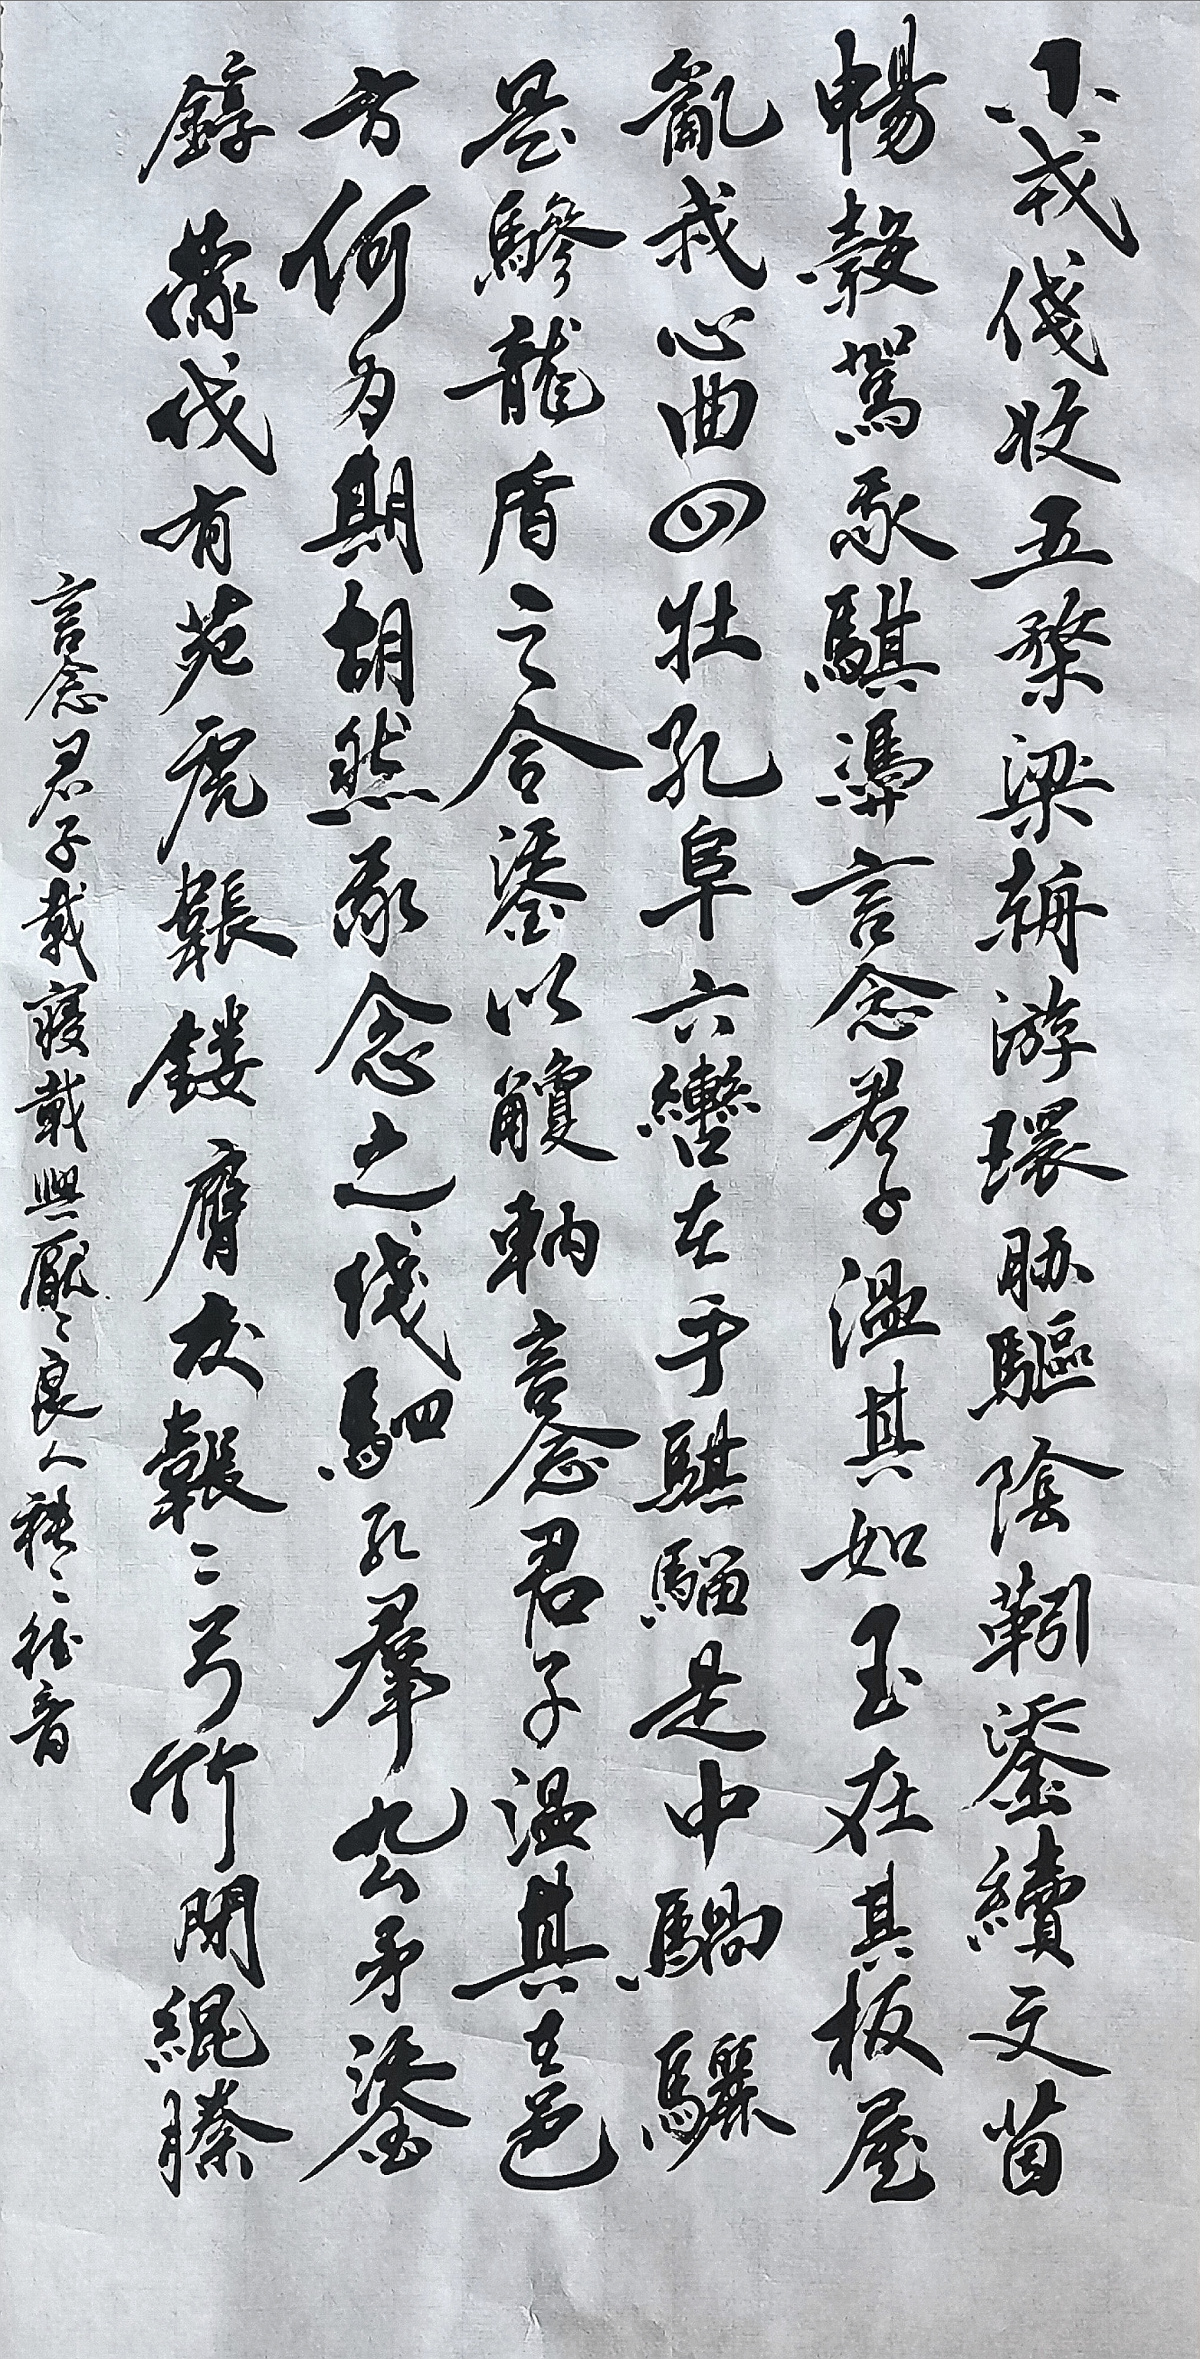 小戎俴收五楘梁輈游環胁驅陰靷鋈續文茵
暢轂駕我騏馵言念君子溫其如玉在其板屋
亂我心曲四牡孔阜六轡在手騏騮是中騧驪
是驂龍盾之合鋈以觼軜言念君子溫其在邑
方何為期胡然我念之俴駟孔羣厹矛鋈
錞蒙伐有苑虎韔鏤膺交韔二弓竹閉緄縢
言念君子載寢載興厭〻良人秩〻德音